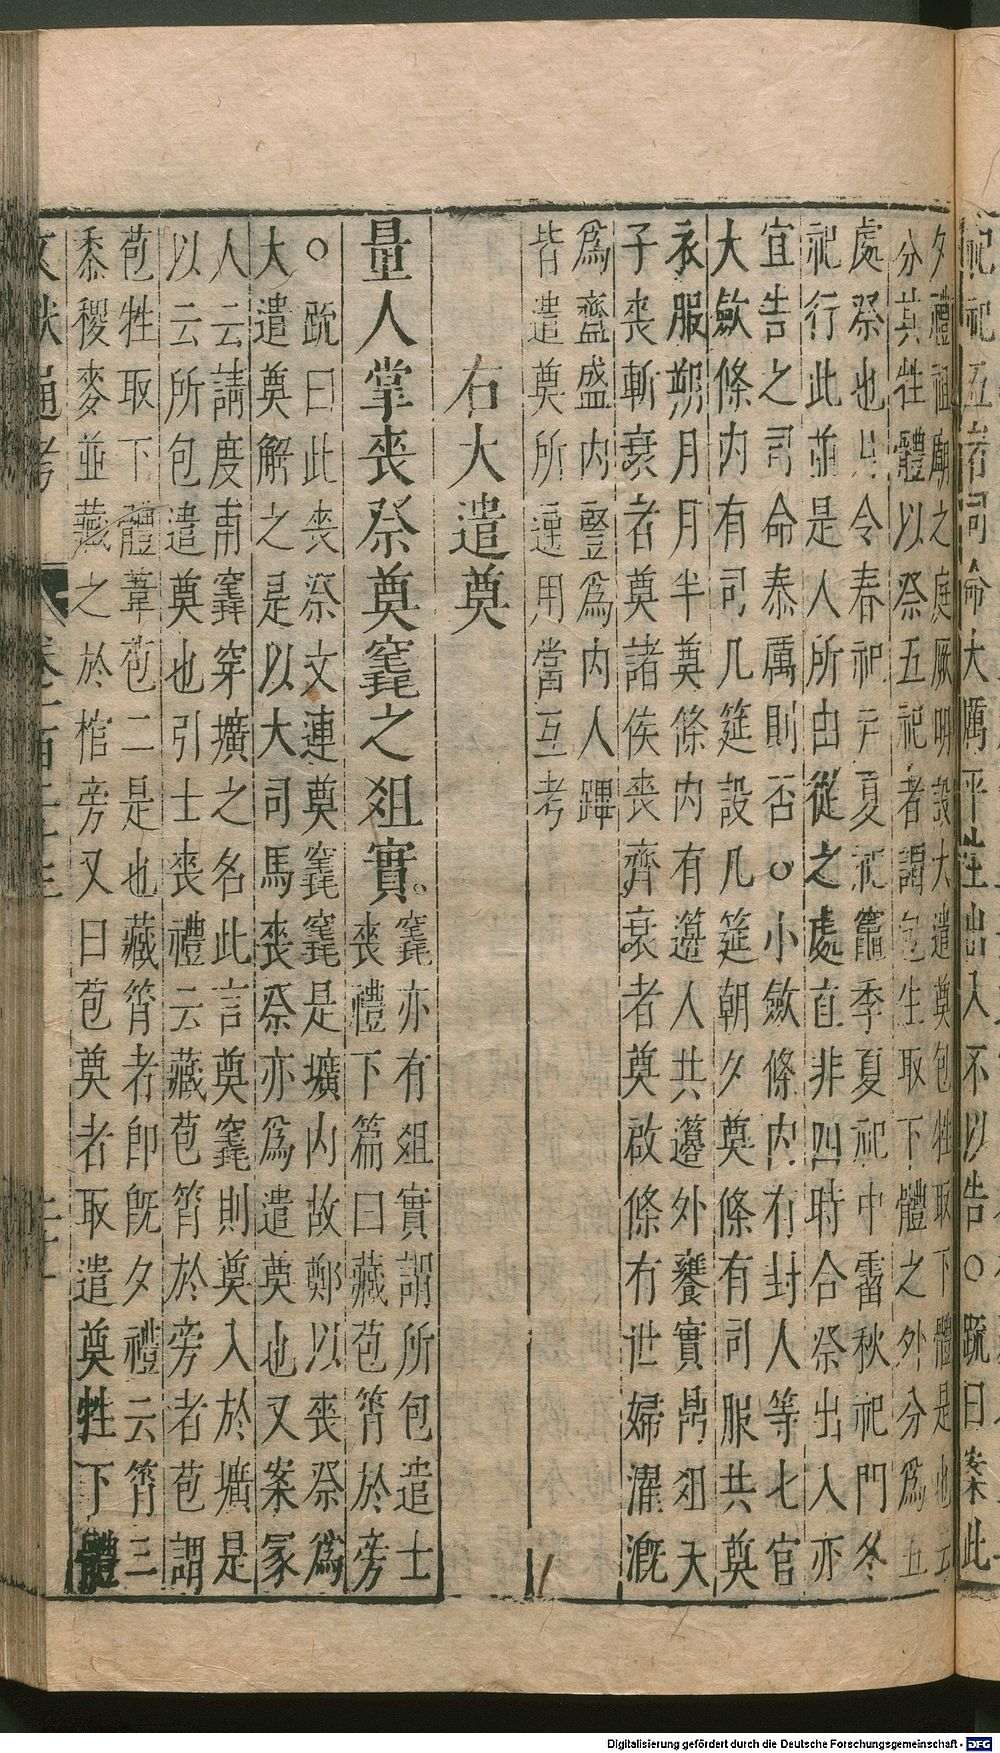 祀祀五者司命大厲平生出入不以告○䟽曰案此
夕禮祖廟之庭厥明設大遣奠包牲取下體是也云
分其牲體以祭五祀者謂包牲取下體之外分爲五
處祭也月令春祀戸夏祀竈季夏祀中霤秋祀門冬
祀行此並是人所由從之處直非四時合祭出入亦
宜告之司命泰厲則否○小斂條内有封人等七官
大斂條内有司几筵設几筵朝夕奠條有司服共奠
衣服朔月月半奠條内有籩人共籩外饔實鼎俎天
子喪斬衰者奠諸侯喪齊衰者奠啟條有世婦濯漑
爲齍盛内豎爲内人蹕
皆遣奠所通用當互考
右大遣奠
量人掌喪祭奠竁之俎實。
竁亦有俎實謂所包遣士
喪禮下篇曰藏苞筲於旁
○䟽曰此喪祭文連奠竁竁是壙内故鄭以喪祭爲
大遣奠解之是以大司馬喪祭亦爲遣奠也又案冢
人云請度甫竁穿壙之名此言奠竁則奠入於壙是
以云所包遣奠也引士喪禮云藏苞筲於旁者苞謂
苞牲取下體葦苞二是也藏筲者即旣夕禮云筲三
黍稷麥並藏之於棺旁又曰苞奠者取遣奠牲下體
文獻通考
卷一百二十
Digitalisierung gefördert durch die Deutsche Forschungsgemeinschaft - DFG